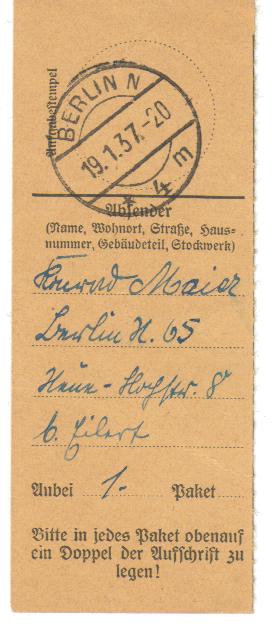 Aufgabestempel
BERLIN N
19.1.37.-20
* 4 m
Absender
(Name, Wohnort, Straße, Haus-
nummer, Gebäudeteil, Stockwerk)
Konrad Maier
Berlin N. 65
Neue-Hochstr. 8
b. Eilert
Anbei 1- Paket
Bitte in jedes Paket obenauf
ein Doppel der Aufschrift zu
legen!